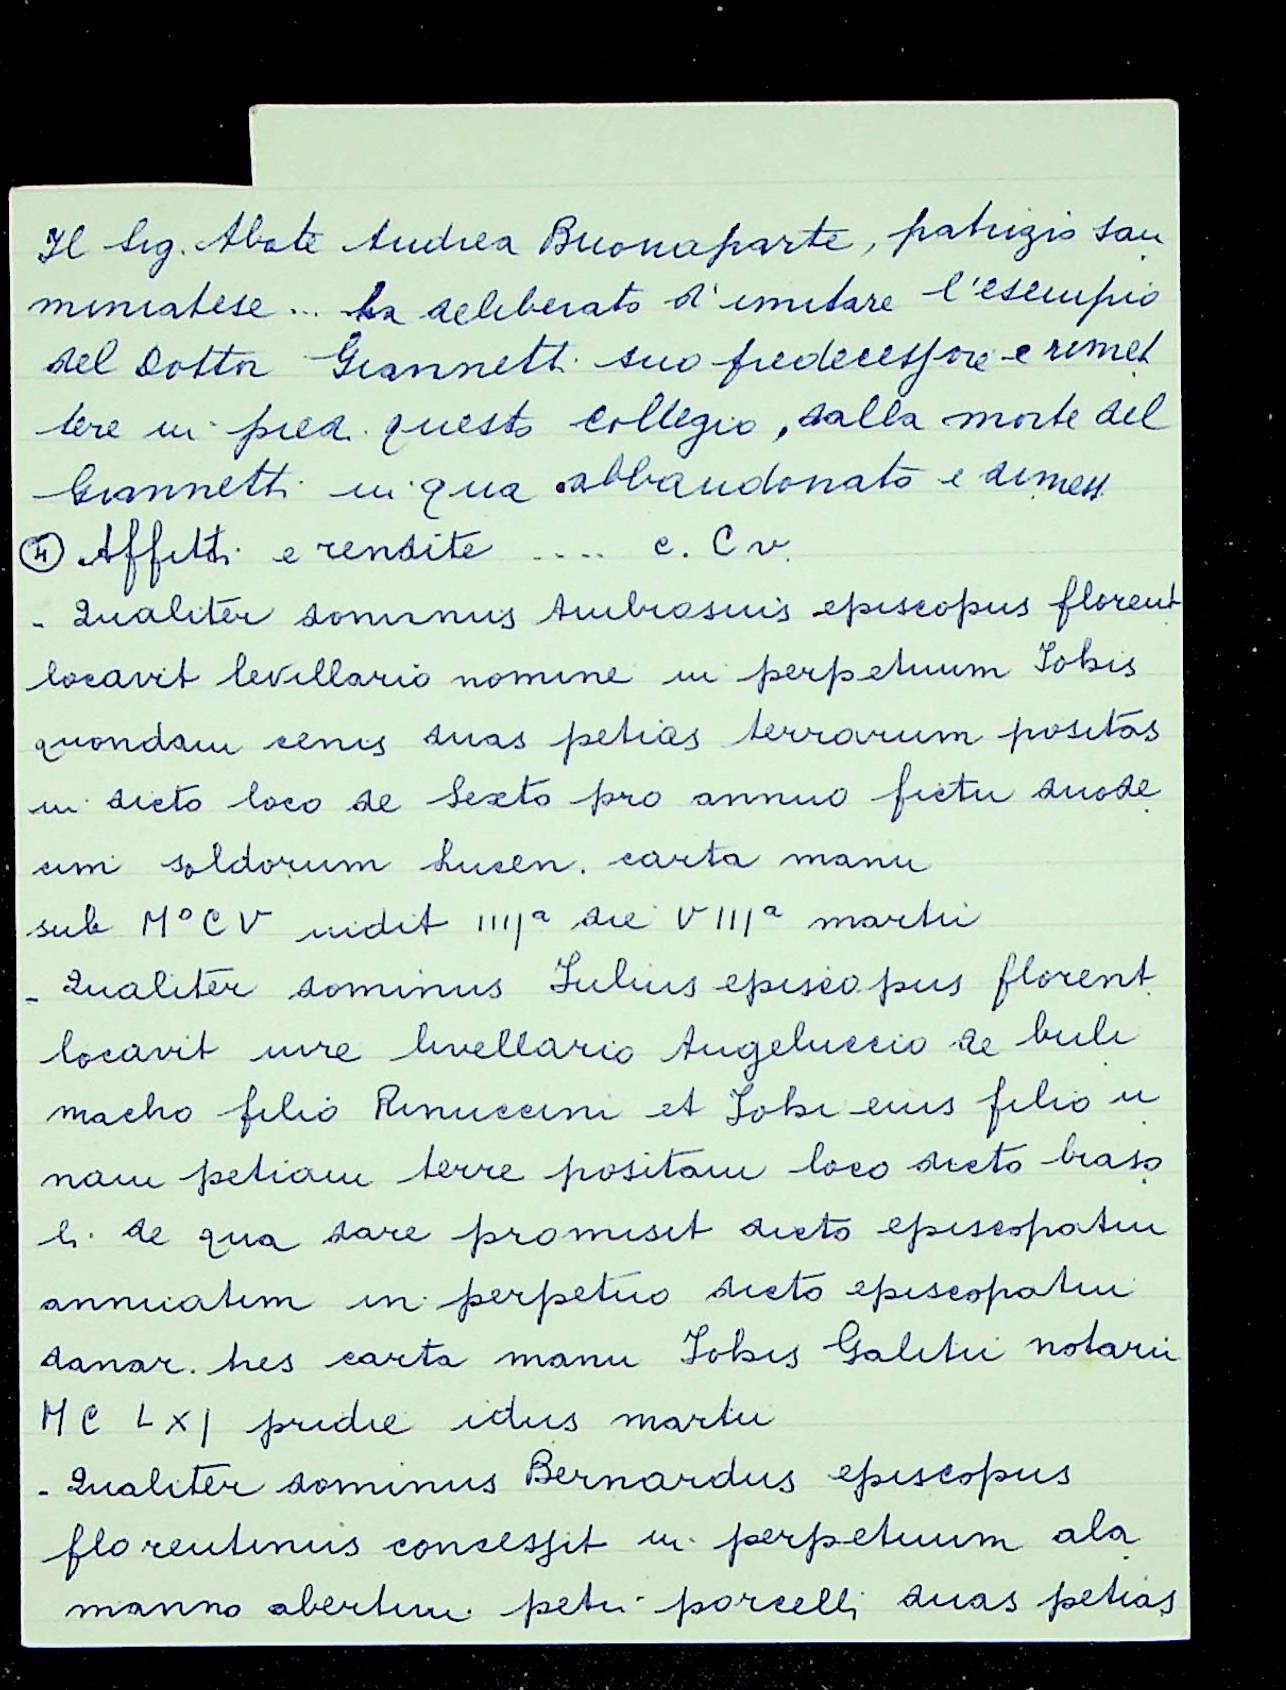 Il Sig. Abate Andrea Buonaparte, patrizio san
miniatese ... ha deliberato d'imitare l'esempio
del Dottor Giannetti suo predecessore e rimet
tere in pied. questo collegio, dalla morte del
Giannetti in qua abbandonato e dimess
④ Affitti e rendite .... c. C v.
- Qualiter dominus Ambrosius episcopus florent
locavit levillario nomine in perpetuum Iohis
quondam cenis duas petias terrarum positas
in dicto loco de Sexto pro annuo fictu duode
cim soldorum Lucen. carta manu
sub M° C V indit IIIIª die VIIIª martii
- Qualiter dominus Iulius episcopus florent.
locavit iure livellario Angeluccio de buli
macho filio Rinuccini et Iohi eius filio u
nam petiam terre positam loco dicto braso
li. de qua dare promisit dicto episcopatui
annuatim in perpetuo dicto episcopatui
danar. tres carta manu Iohis Galitii notarii
MC LXI pridie idus martii
- Qualiter dominus Bernardus episcopus
florentinus concessit in perpetuum ala
manno abertini petri porcelli duas petias